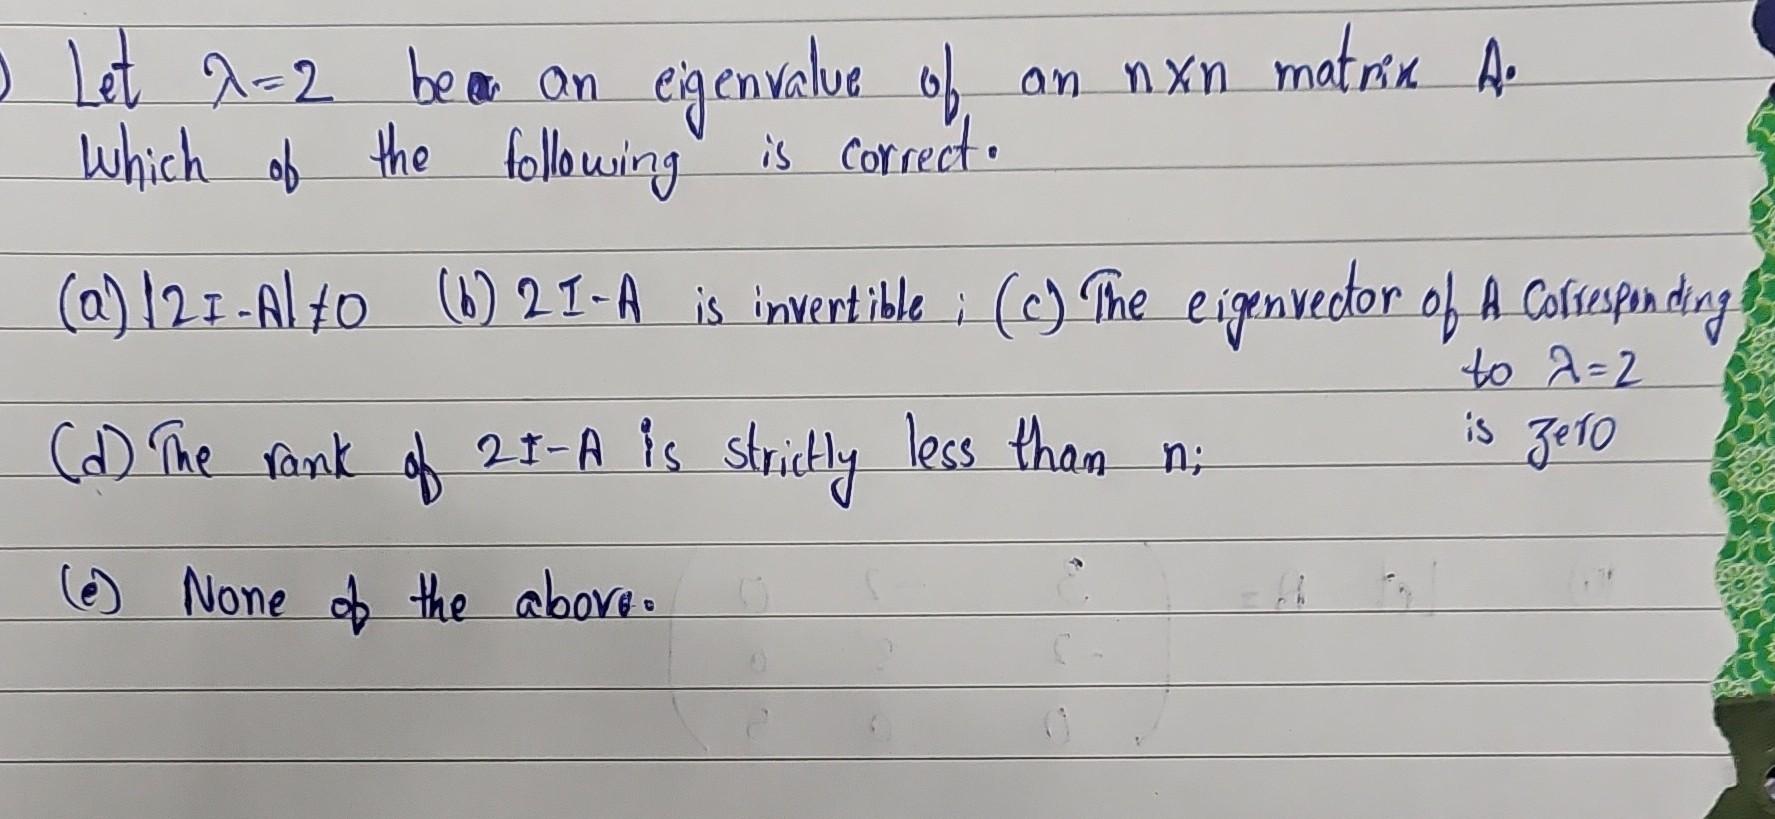 Let λ=2 be an eigenvalue of an nxn matrix A.
Which of the following is correct.
(a) |2I-A|≠0 (b) 2I-A is invertible ; (c) The eigenvector of A Corresponding
to λ=2
is zero
(d) The rank of 2I-A is strictly less than n;
(e) None of the above.